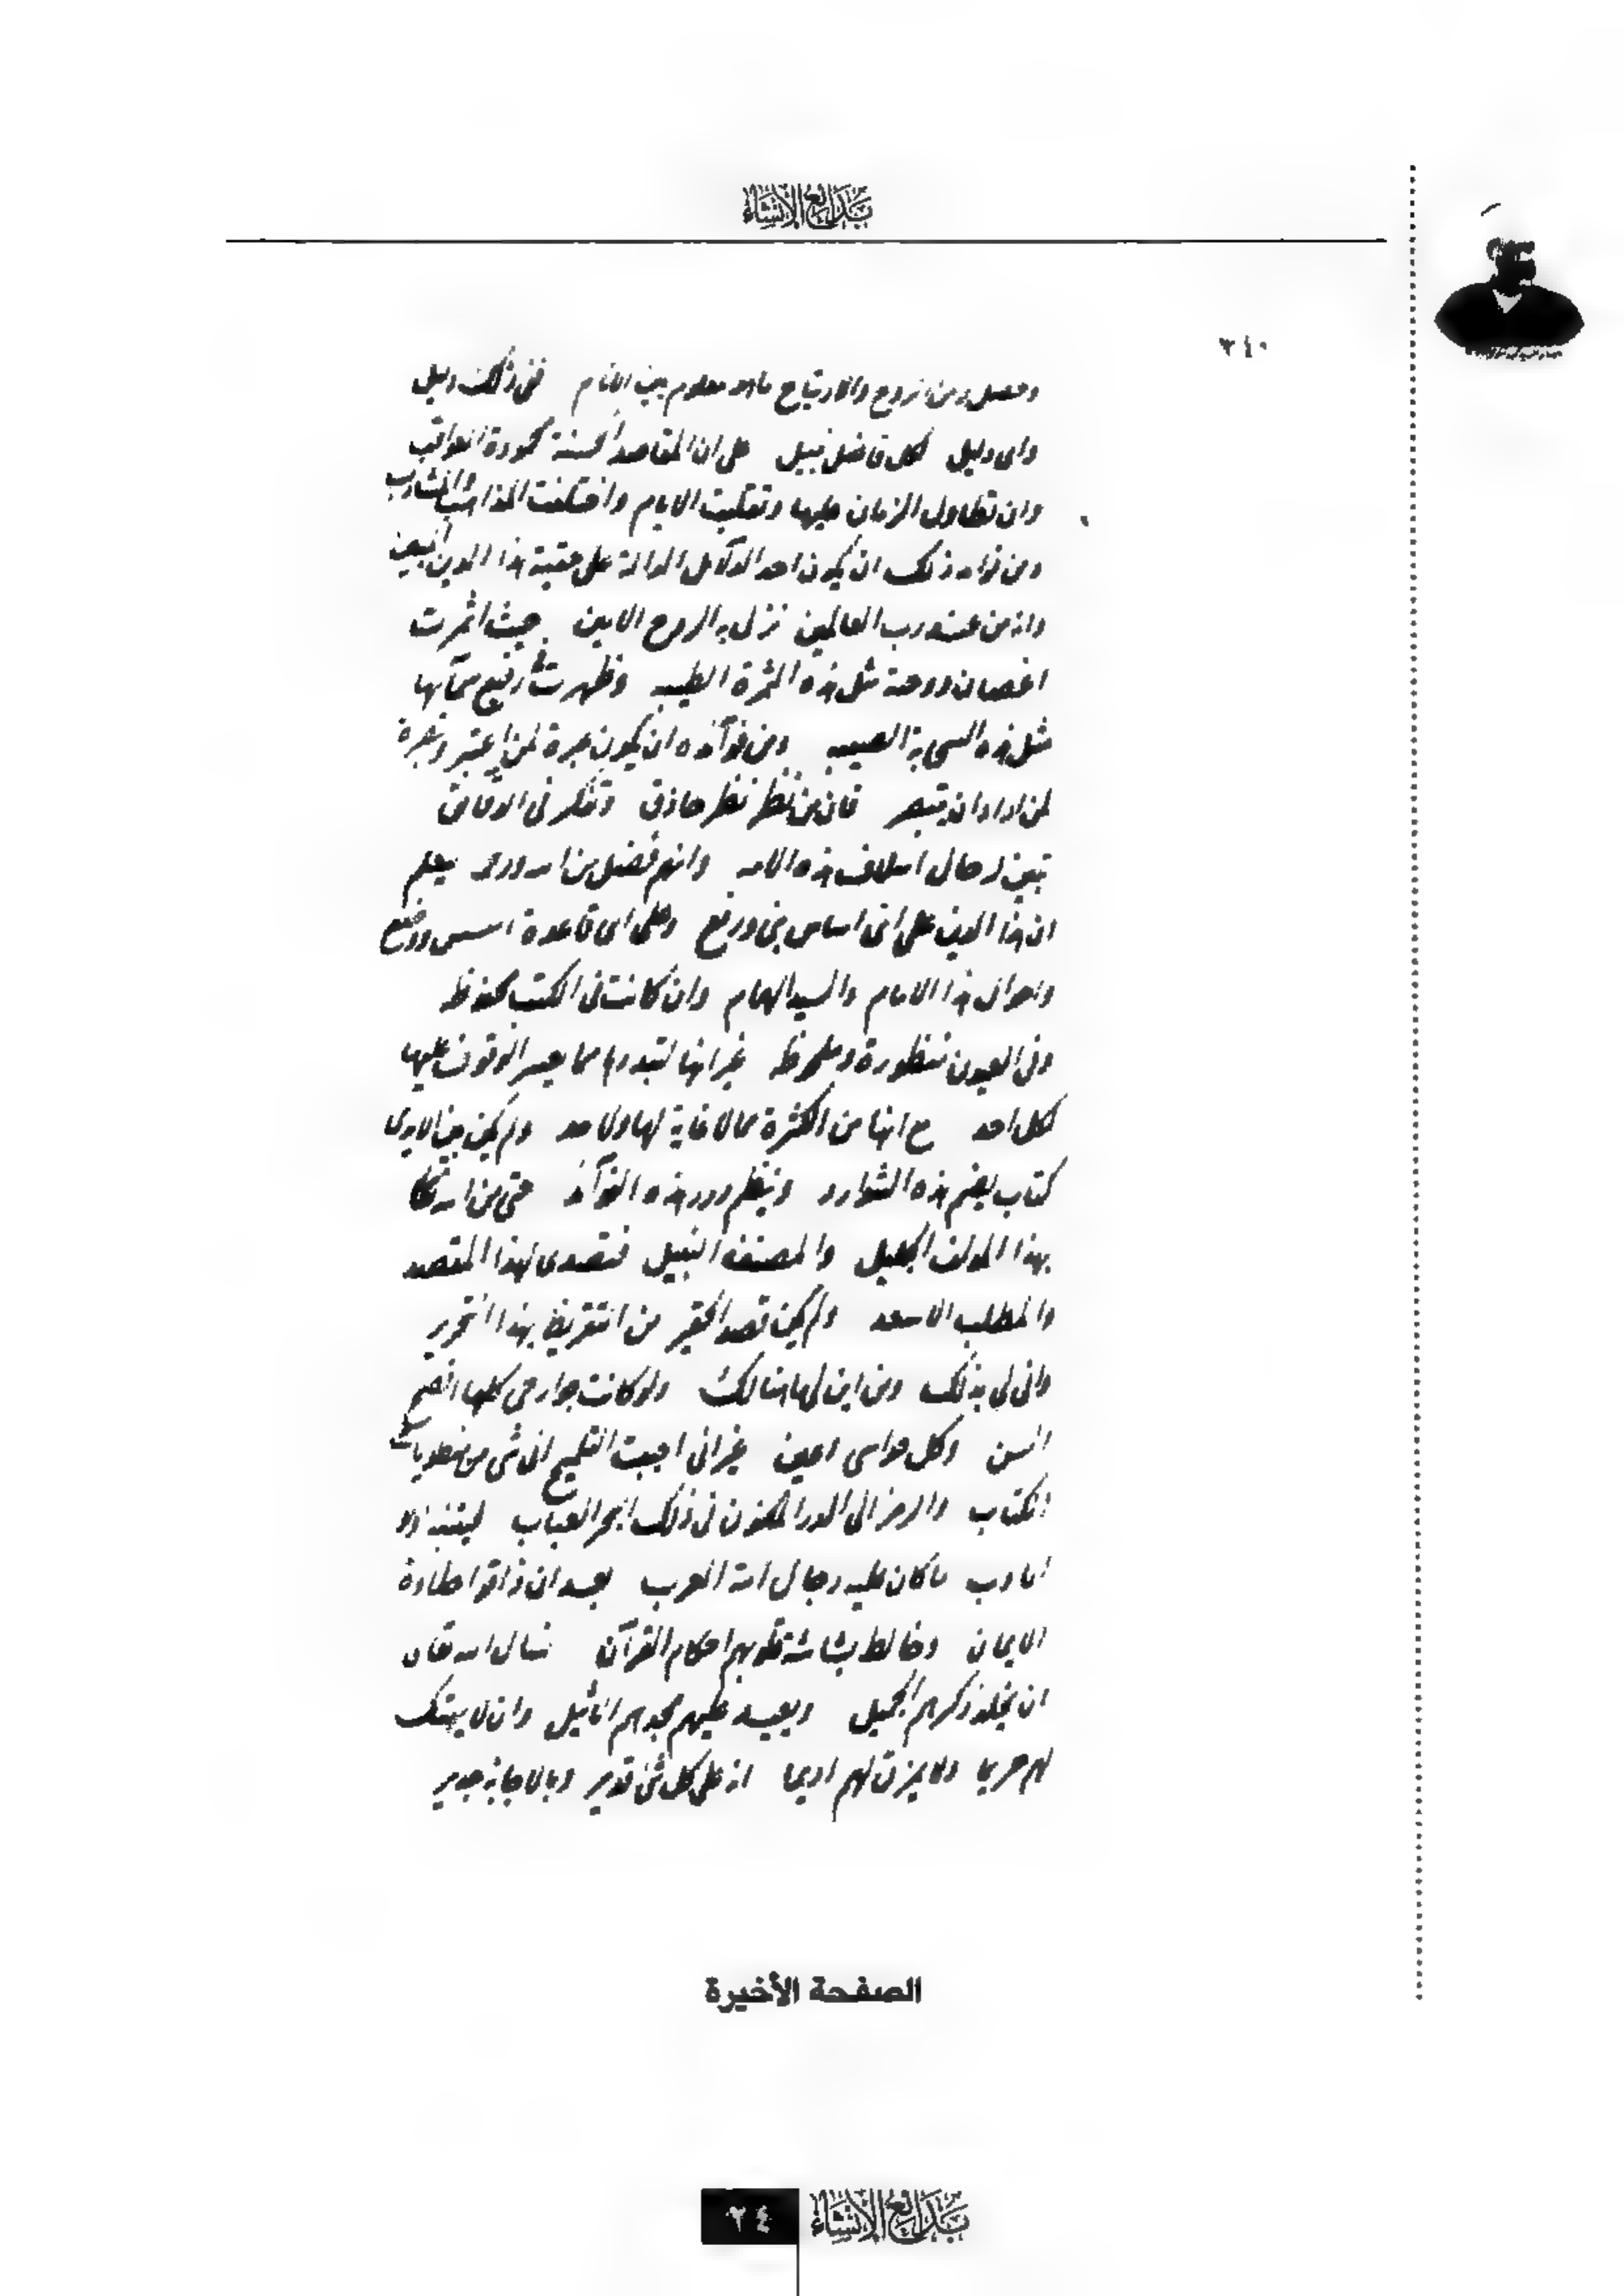 بدائع الإنشاء
٣٤٠
وحصل من الروح والارتياح ما هو معلوم بين الانام ففى ذلك دليل
واى دليل لكل فاضل نبيل على ان المقاصد الحسنة محمودة العواقب
وان تطاول الزمان عليها وتقلبت الايام واختلفت المذاهب والمشارب
ومن فوائد ذلك ان يكون احد الدلائل الدالة على حقية هذا الدين المبين
وانه من عند رب العالمين نزل به الروح الامين حيث اثمرت
اغصان دوحته مثل هذه الثمرة الطيبه وظهرت رفيع سمائها
مثل هذه السحابة الصيبه ومن فوائده ان يكون عبرة لمن اعتبر
لمن اراد ان يتبصر فان من نظر نظر حاذق وتفكر فى الدقائق
تبين له حال اسلاف هذه الامه وانهم فضل من الله ورحمه يعلم
ان هذا الدين على اى اساس بنى ورفع وعلى اى قاعدة اسس ووضع
واحوال هذا الامام والسيد الهمام وان كانت فى الكتب محفوظه
وفى العيون منظورة وملحوظه غير انها لتبددها مما يعسر الوقوف عليها
لكل احد مع انها من الكثرة مما لا غاية لها ولا حد ولم يكن بين الايدى
كتاب يضم هذه الشوارد وينظم درر هذه الفوآئد حتى من الله تعالى
بهذا المولف الجليل والمصنف النبيل فتصدى لهذا المقصد
والمطلب الاسعد ولم يكن قصد الحقير من التقريظ بهذا التحرير
وانى لى بذلك ومن اين لى ما هنالك ولو كانت جوارحى كلها افصح
السن وكل حواسى اعين غير انى احببت التلميح الى شى من مطويات
الكتاب والرمز الى الدر المكنون فى ذلك البحر العباب ليتنبه اولو
الادب ما كان عليه رجال امة العرب بعد ان ذاقوا حلاوة
الايمان وخالط بشاشة قلوبهم احكام القرآن نسال الله تعالى
ان يخلد ذكرهم الجميل ويعيد عليهم مجدهم الاثيل وان لا يهتك
لهم حريما ولا يمزق لهم اديما انه على كل شئ قدير وبالاجابة جدير
الصفحة الأخيرة
بدائع الإنشاء
٢٤